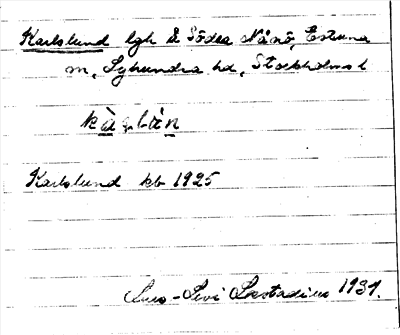 Karlslund lgh å Södra Nånö, Estuna
sn, Lyhundra hd, Stockholms l
Karlslund kb 1925
Lars-Levi Læstadius 1934.